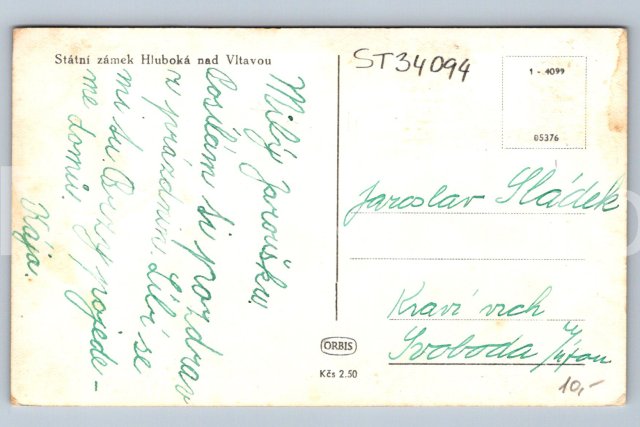 Státní zámek Hluboká nad Vltavou
ST34094
1 - 4099
05376
Milý Jaroušku!
Posílám Ti pozdrav
z prázdnin. Líbí se
mi tu. Brzy pojede-
me domů.
Kája.
Jaroslav Sládek
Kraví vrch
Svoboda n/Úpou
ORBIS
Kčs 2.50
10,-